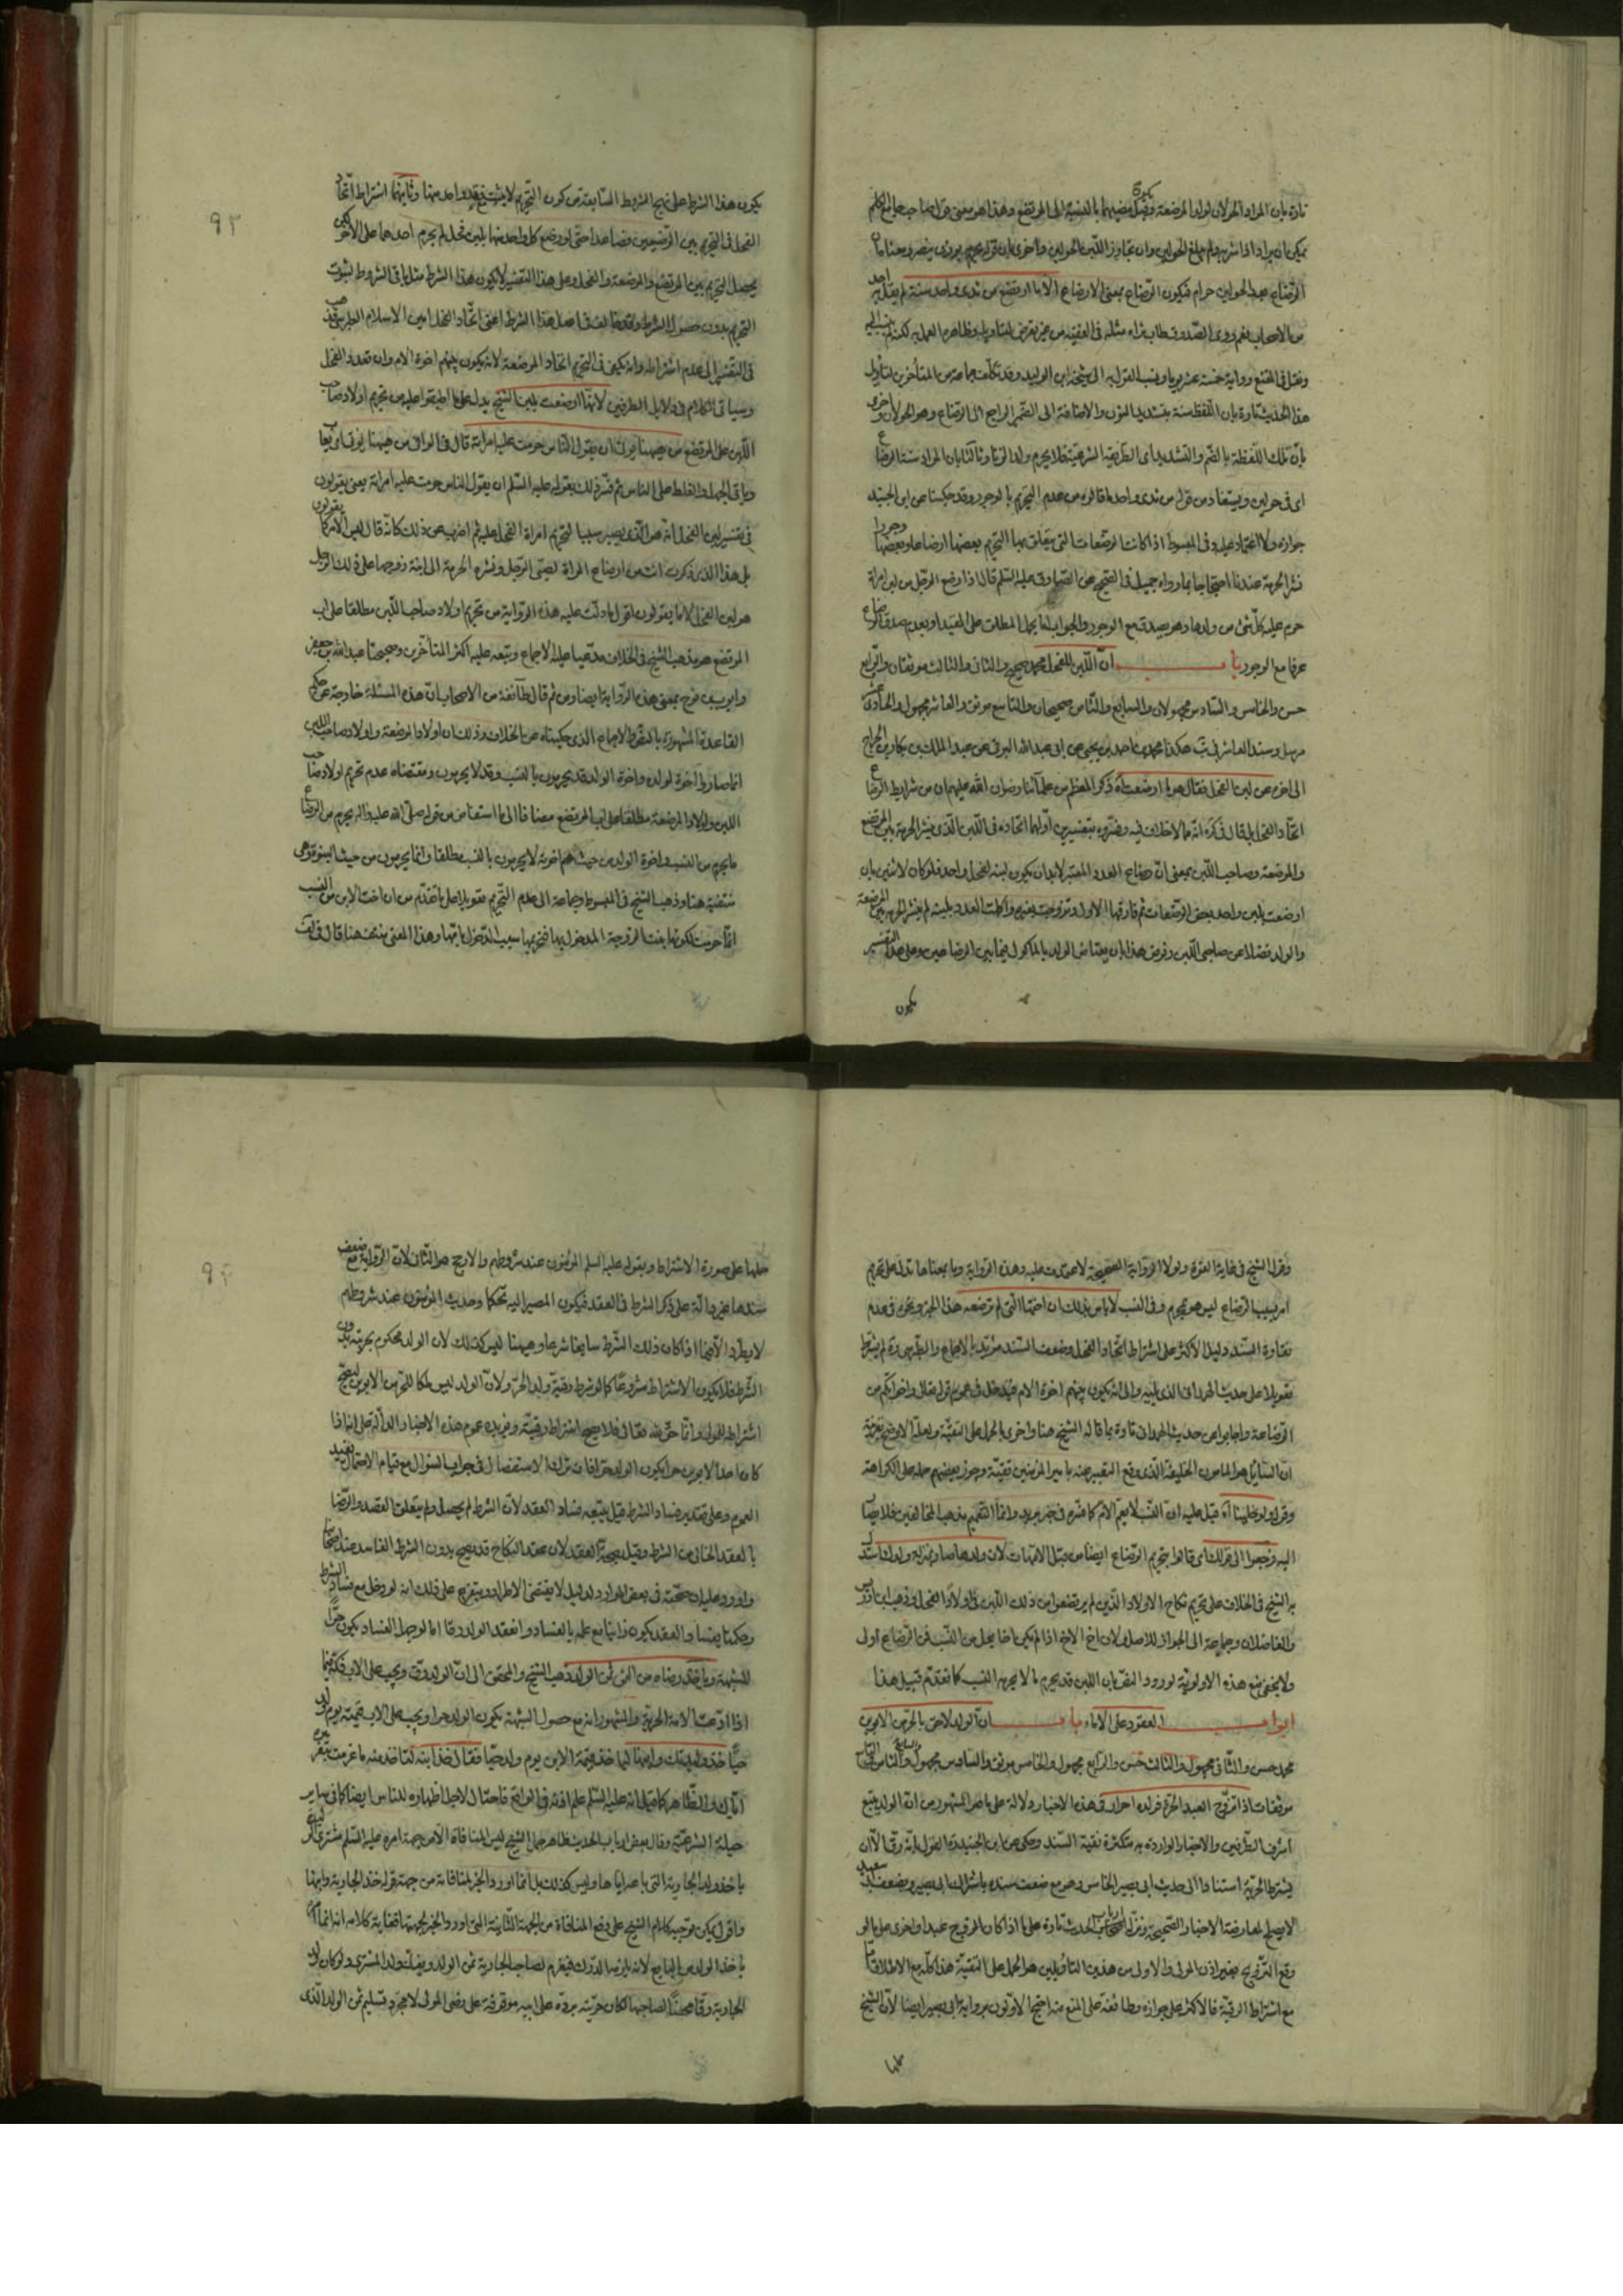 تارة بان المراد الحولان لولد المرضعة وقبل مضيهما بالنسبة الى المرتضع وهذا هو معنى
يمكن ان يراد اذا شرب قبل بلوغ الحولين وان تجاوز اللبن الحولين واخرى بان قوله
الرضاع بعد الحولين حرام فيكون الرضاع بمعنى الارضاع الا ما ارتضع من ثدى واحد سنة لم يقل به احد
من الاصحاب نعم روى الصدوق طاب ثراه مثله فى الفقيه من غير تعرض لتاويله وظاهره العمل به لكنه
ونقل فى المقنع رواية خمسة عشر يوما ونسب القول به الى شيخه ابن الوليد وقد تكلف جماعة من المتأخرين لتأويل
هذا الحديث تارة بان اللفظ سنه بتشديد النون والاضافة الى الضمير الراجع الى الرضاع وهو الحولان واخرى
بان تلك اللفظة بالضم والتشديد اى الطريقة الشرعية فلا يحرم ولد الزنا وثالثا بان المراد سنة الرضاع
اى فى حولين ويستفاد من قوله من ثدى واحد ما قالوه من عدم التحريم بالوجور وقد حكينا عن ابن الجنيد
جوازه ولا اعتماد عليه وفى المبسوط اذا كانت الرضعات التى يتعلق بها التحريم بعضها ارضاعا وبعضها وجورا
نشر الحرمة عندنا احتجاجا بما رواه جميل فى الصحيح عن الصادق عليه السلم قال اذا رضع الرجل من لبن امراة
حرم عليه كل شئ من ولدها وهو يصدق مع الوجور والجواب اما بحمل المطلق على المقيد او بعدم صدق الرضاع
عرفا مع الوجور باب ان اللبن للفحل محمد صحيح والثانى والثالث موثقان والرابع
حسن والخامس والسادس مجهولان والسابع والثامن صحيحان والتاسع موثق والعاشر مجهول والحادى عشر
مرسل وسند العاشر فى يب هكذا محمد بن احمد بن يحيى عن ابى عبد الله البرقى عن عبد الملك بن بكار بن الجراح
الى اخره عن لبن الفحل فقال هو ما ارضعت اه ذكر المعظم من علمآئنا رضوان الله عليهم ان من شرايط الرضاع
اتحاد الفحل بل قال فى كره انه مما لا خلاف فيه وفسروه بتفسيرين اولهما اتحاده فى اللبن الذى ينشر الحرمة بين المرتضع
والمرضعة وصاحب اللبن بمعنى ان رضاع العدد المعتبر لا بد ان يكون لبنه لفحل واحد فلو كان لاثنين بان
ارضعت بلبن واحد بعض الرضعات ثم فارقها الاول وتزوجت بغيره واكملت العدد بلبنه لم ينشر الحرمة بين المرضعة
والولد فضلا عن صاحبى اللبن وفرض هذا بان يعتاض الولد بالماكول فيما بين الرضاعين وعلى هذا التفسير
يكون
٩٣
يكون هذا الشرط على نهج الشروط السابقة من كون التحريم لا يثبت بفقد واحد منها وثانيهما اشتراط اتحاد
الفحل فى التحريم بين الرضيعين فصاعدا حتى لو رضع كل واحد منهما بلبن فحل لم يحرم احدهما على الاخر لكن
يحصل التحريم بين المرتضع والمرضعة والفحل وعلى هذا التفسير لا يكون هذا الشرط مثل باقى الشروط لثبوت
التحريم بدون حصول الشرط وقد خالف فى اصل هذا الشرط اعنى اتحاد الفحل امين الاسلام الطبرسى
فى التفسير الى عدم اشتراطه وانه يكفى فى التحريم اتحاد المرضعة لانه يكون بينهم اخوة الام وان تعدد الفحل
وسياتى الكلام فى دلايل الطرفين لانها ارضعت بلبن الشيخ يدل على ما اطبقوا عليه من تحريم اولاد صاحب
اللبن على المرتضع من ههنا يؤتى ان يقول الناس حرمت عليه امراته قال فى الوافى من ههنا يؤتى اى
وياتى الجهل والغلط على الناس ثم فسر ذلك بقوله عليه السلم ان يقول الناس حرمت عليه امراته يعنى يقولون
فى تفسير لبن الفحل انه هو الذى يصير سببا لتحريم امراة الفحل عليه ثم اضرب عن ذلك كانه قال ليس الامر كما يقولون
بل هذا الذى ذكرت انت من ارضاع المراة لصبى الرجل ونشره الحرمة الى ابنة زوجها على ذلك الرجل
هو لبن الفحل لا ما يقولون اقول ما دلت عليه هذه الرواية من تحريم اولاد صاحب اللبن مطلقا على اب
المرتضع هو مذهب الشيخ فى الخلاف مدعيا عليه الاجماع وتبعه عليه اكثر المتأخرين وصحيحتا عبد الله بن جعفر
وايوب بن نوح بمعنى هذه الرواية ايضا ومن ثم قال طآئفة من الاصحاب ان هذه المسئلة خارجة عن حكم
القاعدة المشهورة بالنص والاجماع الذى حكيناه عن الخلاف وذلك ان اولاد المرضعة واولاد صاحب اللبن
انما صاروا اخوة لولده واخوة الولد قد يحرمون بالنسب وقد لا يحرمون ومقتضاه عدم تحريم اولاد صاحب
اللبن واولاد المرضعة مطلقا على اب المرتضع مضافا الى ما استفاض من قوله صلى الله عليه واله يحرم من الرضاع
ما يحرم من النسب واخوة الولد من حيث هم اخوته لا يحرمون بالنسب مطلقا وانما يحرمون من حيث البنوة وهى
منتفية هنا وذهب الشيخ فى المبسوط وجماعة الى عدم التحريم تعويلا على ما تقدم من ان اخت الابن من النسب
انما حرمت لكونها بنت الزوجة المدخول بها فتحريمها بسبب الدخول بامها وهذا المعنى منتف هنا قال فى لف
وقول الشيخ فى غاية القوة ولولا الرواية الصحيحة لاعتمدت عليه وهذه الرواية وما بمعناها تدل على تحريم
امر بسبب الرضاع ليس هو يحرم وفى النسب لا باس بذلك ان اختها التى لم ترضعه هذا الخبر
نقاوة السند دليل الاكثر على اشتراط اتحاد الفحل وضعف السند مؤيد بالاجماع والطبرسى ره لم يشترط
تعويلا على حديث الهمدانى الذى يليه والى انه يكون بينهم اخوة الام فيدخل فى عموم قوله تعالى واخواتكم من
الرضاعة واجابوا عن حديث الهمدانى تارة بما قاله الشيخ هنا واخرى بالحمل على التقية ولعله الاوضح بقرينة
ان السائل هو المامون الخليفة الذى وقع التعبير عنه بامير المؤمنين تقية وجوز بعضهم حمله على الكراهة
وقوله ولو خلينا اه قيل عليه ان النسب لا يعم الام كما فسره فى خبر بريد وانما التعميم مذهب المخالفين فلا يصار
اليه ورجعوا الى قولك اى قالوا بتحريم الرضاع ايضا من قبل الامهات لان ولدها صار بمنزلة ولدك استدل
به الشيخ فى الخلاف على تحريم نكاح الاولاد الذين لم يرتضعوا من ذلك اللبن فى اولاد الفحل وذهب ابن ادريس
والفاضلان وجماعة الى الجواز للاصل ولان اخ الاخ اذا لم يكن اخا يحل من النسب فمن الرضاع اولى
ولا يخفى منع هذه الاولوية لورود النص بان اللبن قد يحرم ما لا يحرمه النسب كما تقدم قبيل هذا
ابواب العقود على الاماء باب ان الولد لاحق بالحر من الابوين
محمد حسن والثانى مجهول والثالث حسن والرابع مجهول والخامس موثق والسادس مجهول والسابع والثامن والتاسع
موثقات اذا تزوج العبد الحرة فولده احرار فى هذه الاخبار دلالة على ما هو المشهور من ان الولد يتبع
اشرف الطرفين والاخبار الواردة به متكثرة نقية السند وحكى عن ابن الجنيد ره القول بانه رق الا ان
يشترط الحرية استنادا الى حديث ابى بصير الخامس وهو مع ضعف سنده باشتراك ابى بصير وبضعف ابى سعيد
لا يصلح لمعارضة الاخبار الصحيحة ونزله اصحاب الحديث تارة على ما اذا كان المزوج عبدا واخرى على ما لو
وقع التزويج بغير اذن المولى والاولى من هذين التأويلين هو الحمل على التقية هذا كله مع الاطلاق اما
مع اشتراط الرقية فالاكثر على جوازه وطائفة على المنع منه احتج الاولون برواية ابى بصير ايضا لان الشيخ
حملها
حملها على صورة الاشتراط وبقوله عليه السلم المؤمنون عند شروطهم والارجح هو الثانى لان الرواية مع ضعف
سندها غير دالة على ذكر الشرط فى العقد فيكون المصير اليه تحكما وحديث المؤمنون عند شروطهم
لا يطرد الا فيما اذا كان ذلك الشرط سايغا شرعا وههنا ليس كذلك لان الولد محكوم بحريته بدون
الشرط فلا يكون الاشتراط مشروعا كما لو شرط رقية ولد الحر ولان الولد ليس ملكا للحر من الابوين ليصح
اشتراطه للمولى وانما حق لله تعالى فلا يصح اشتراط رقيته ويؤيده عموم هذه الاخبار الدالة على انه اذا
كان احد الابوين حرا يكون الولد حرا فان ترك الاستفصال فى جواب السؤال مع قيام الاحتمال يفيد
العموم وعلى تقدير فساد الشرط قيل يتبعه فساد العقد لان الشرط لم يحصل ولم يتعلق القصد والرضا
بالعقد الخالى عن الشرط وقيل بصحة العقد لان عقد النكاح قد يصح بدون الشرط الفاسد عند اصحابنا
واورد عليه ان صحته فى بعض الموارد لدليل لا يقتضى الاطراد ويتفرع على ذلك انه لو دخل مع فساد الشرط
وحكمنا بفساد العقد يكون زانيا مع علمه بالفساد وانعقد الولد رقا اما لو جهل الفساد يكون حرا
للشبهة وياخذ رضاه من الثمن ثمن الولد ذهب الشيخ والمحقق الى ان الولد رق ويجب على الاب فكه فيما
اذا ادعت الامة الحرية والمشهور انه مع حصول الشبهة يكون الولد حرا ويجب على الاب قيمته يوم ولد
حيا خذ وليدتك وابنها ليأخذ قيمة الابن يوم ولد حيا فقال خذ ابنه
اليك والظاهر كما قيل انه عليه السلم علم اذنه فى الواقع فاحتال لاجل اظهاره للناس ايضا كما فى ساير
حيلة الشرعية وقال بعض ارباب الحديث ظاهر حمل الشيخ ليس المنافاة الا من جهة امره عليه السلم مشترى
ياخذ ولد الجارية التى باعه اياها وليس كذلك بل انما اورد الخبر لمنافاته من جهة قوله خذ الجارية وابنها
واقول يمكن توجيه كلام الشيخ على رفع المنافاة من الجهة الثانية التى اورد الخبر لجهتها فغاية كلامه انه انما
ياخذ الولد من البايع لانه يلزمه الدرك فيغرم لصاحب الجارية ثمن الولد ويفك ولد المشترى ولو كان ولد
الجارية رقا محضا لصاحبها لكان حريته برده على ابيه موقوفة على رضى المولى لا مجرد تسليم ثمن الولد الذى